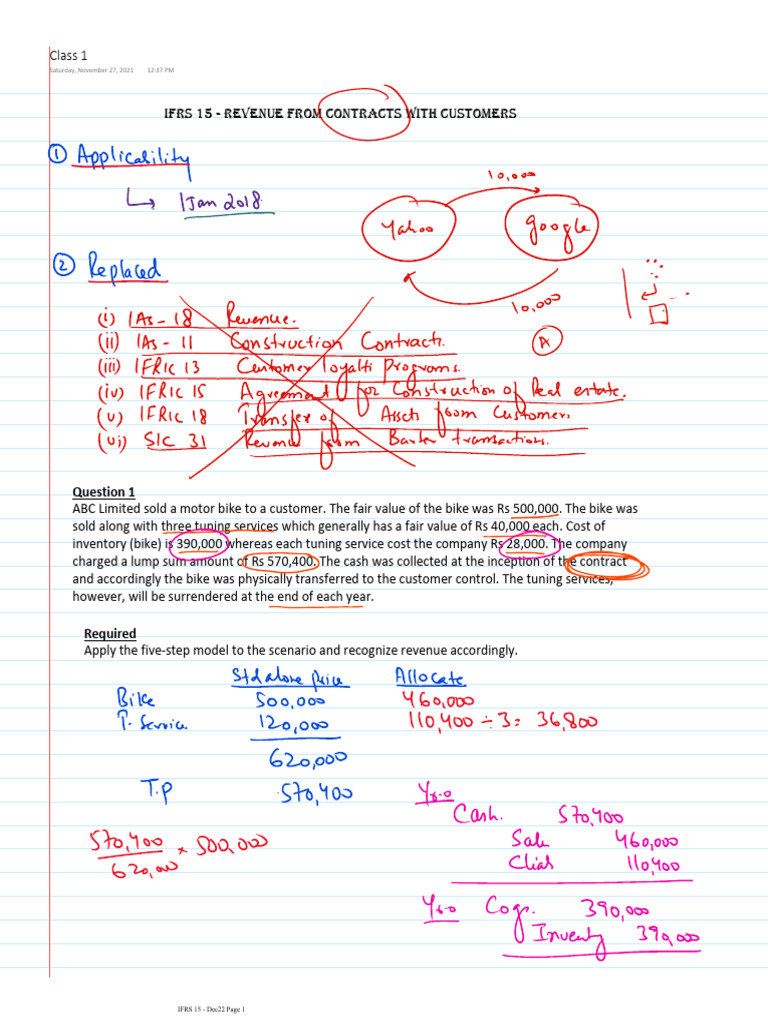 Class 1
Saturday, November 27, 2021 12:37 PM
IFRS 15 - REVENUE FROM CONTRACTS WITH CUSTOMERS
① Applicability
1 Jan 2018.
10,000
Yahoo
Google
10,000
② Replaced
(i) IAS - 18 Revenue.
(ii) IAS - 11 Construction Contract.
A
(iii) IFRIC 13 Customer loyalti Programs.
(iv) IFRIC 15 Agreement for Construction of Real estate.
(v) IFRIC 18 Transfer of Assets from Customer.
(vi) SIC 31 Revenue from Barter transactions.
Question 1
ABC Limited sold a motor bike to a customer. The fair value of the bike was Rs 500,000. The bike was
sold along with three tuning services which generally has a fair value of Rs 40,000 each. Cost of
inventory (bike) is 390,000 whereas each tuning service cost the company Rs 28,000. The company
charged a lump sum amount of Rs 570,400. The cash was collected at the inception of the contract
and accordingly the bike was physically transferred to the customer control. The tuning services,
however, will be surrendered at the end of each year.
Required
Apply the five-step model to the scenario and recognize revenue accordingly.
Std alone price Allocate
Bike 500,000 460,000
T. Service 120,000 110,400 ÷ 3 = 36,800
620,000
T.P 570,400
Yr-0
Cash. 570,400
Sale 460,000
Cliab 110,400
570,400 × 500,000
620,000
Yr-0 Cogs. 390,000
Inventy 390,000
IFRS 15 - Dec22 Page 1